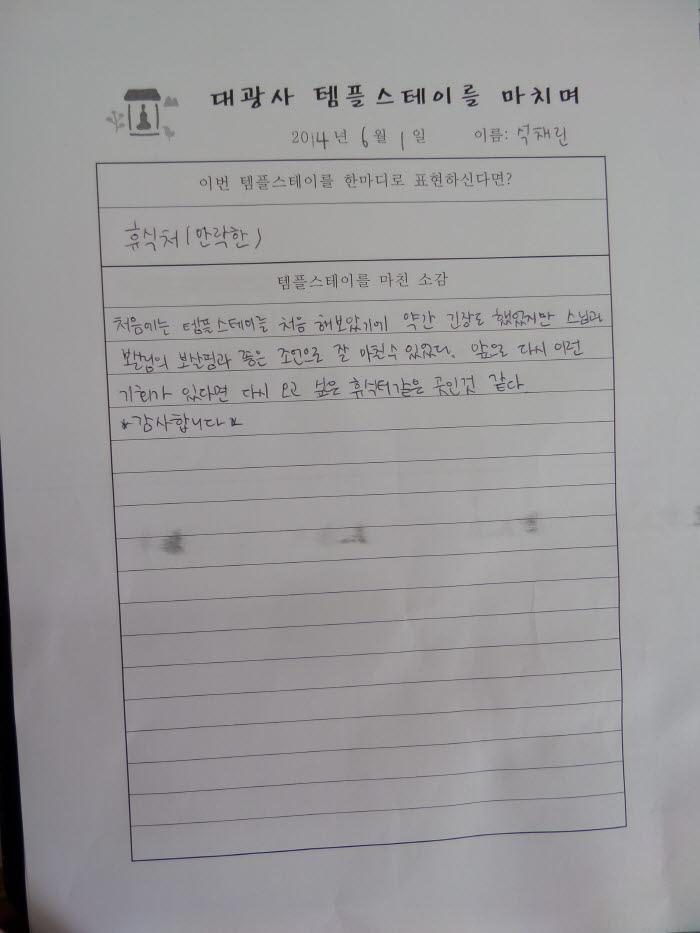 대광사 템플스테이를 마치며
2014년 6월 1일 이름: 석채린
이번 템플스테이를 한마디로 표현하신다면?
휴식처(안락한)
템플스테이를 마친 소감
처음에는 템플스테이를 처음 해보았기에 약간 긴장도 했었지만 스님과
보살님의 보살핌과 좋은 조언으로 잘 마칠수 있었다. 앞으로 다시 이런
기회가 있다면 다시 오고 싶은 휴식터같은 곳인것 같다
*감사합니다*